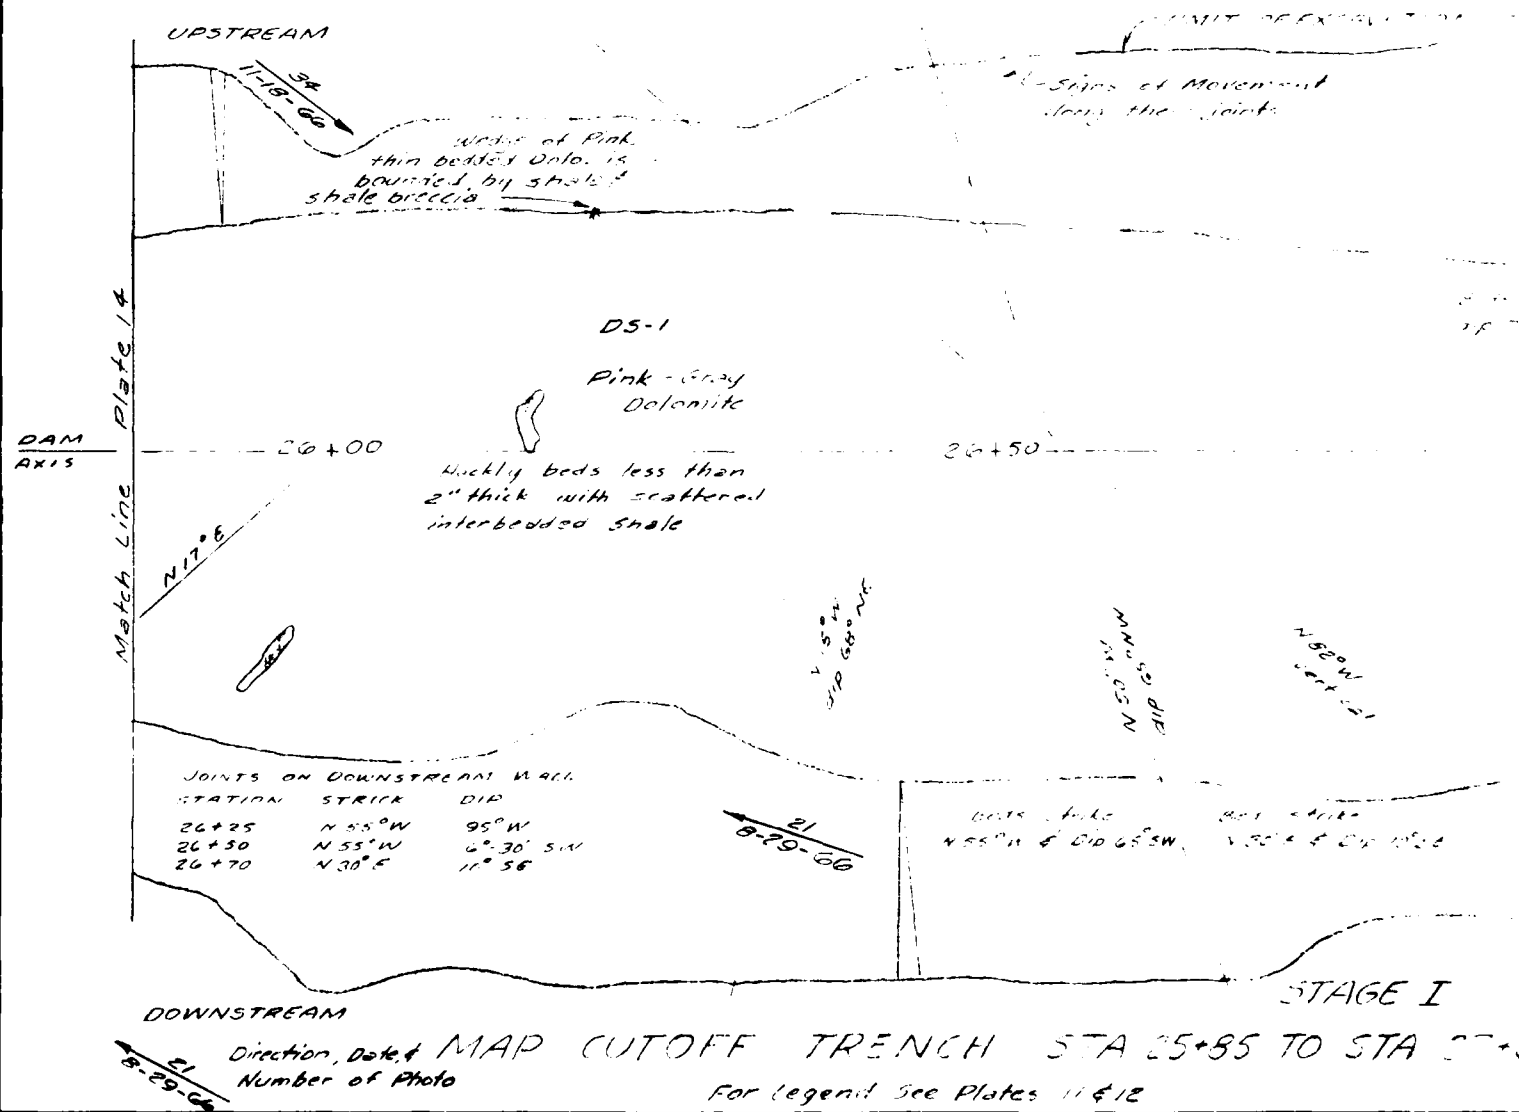 UPSTREAM
LIMIT OF EXCAVATION
34
11-18-66
Signs of Movement
along the joints
Wedge of Pink
thin bedded Dolo. is
bounded by shale &
shale breccia
DS-1
Pink-Gray
Dolomite
Match Line Plate 14
DAM
AXIS
26+00
26+50
Hackly beds less than
2" thick with scattered
interbedded Shale
N17°E
dip 68° NE
dip
N 82° W
Vertical
JOINTS ON DOWNSTREAM WALL
STATION STRICK DIP
26+25 N 55°W 95°W
26+50 N 55°W 6°-30' SW
26+70 N 30°E 11° SE
21
8-29-66
beds strike
N 55° W & Dip 65° SW
Bed strike
& Dip
STAGE I
DOWNSTREAM
21
8-29-66
Direction, Date, &
Number of Photo
MAP CUTOFF TRENCH STA 25+85 TO STA
For legend See Plates 11 & 12